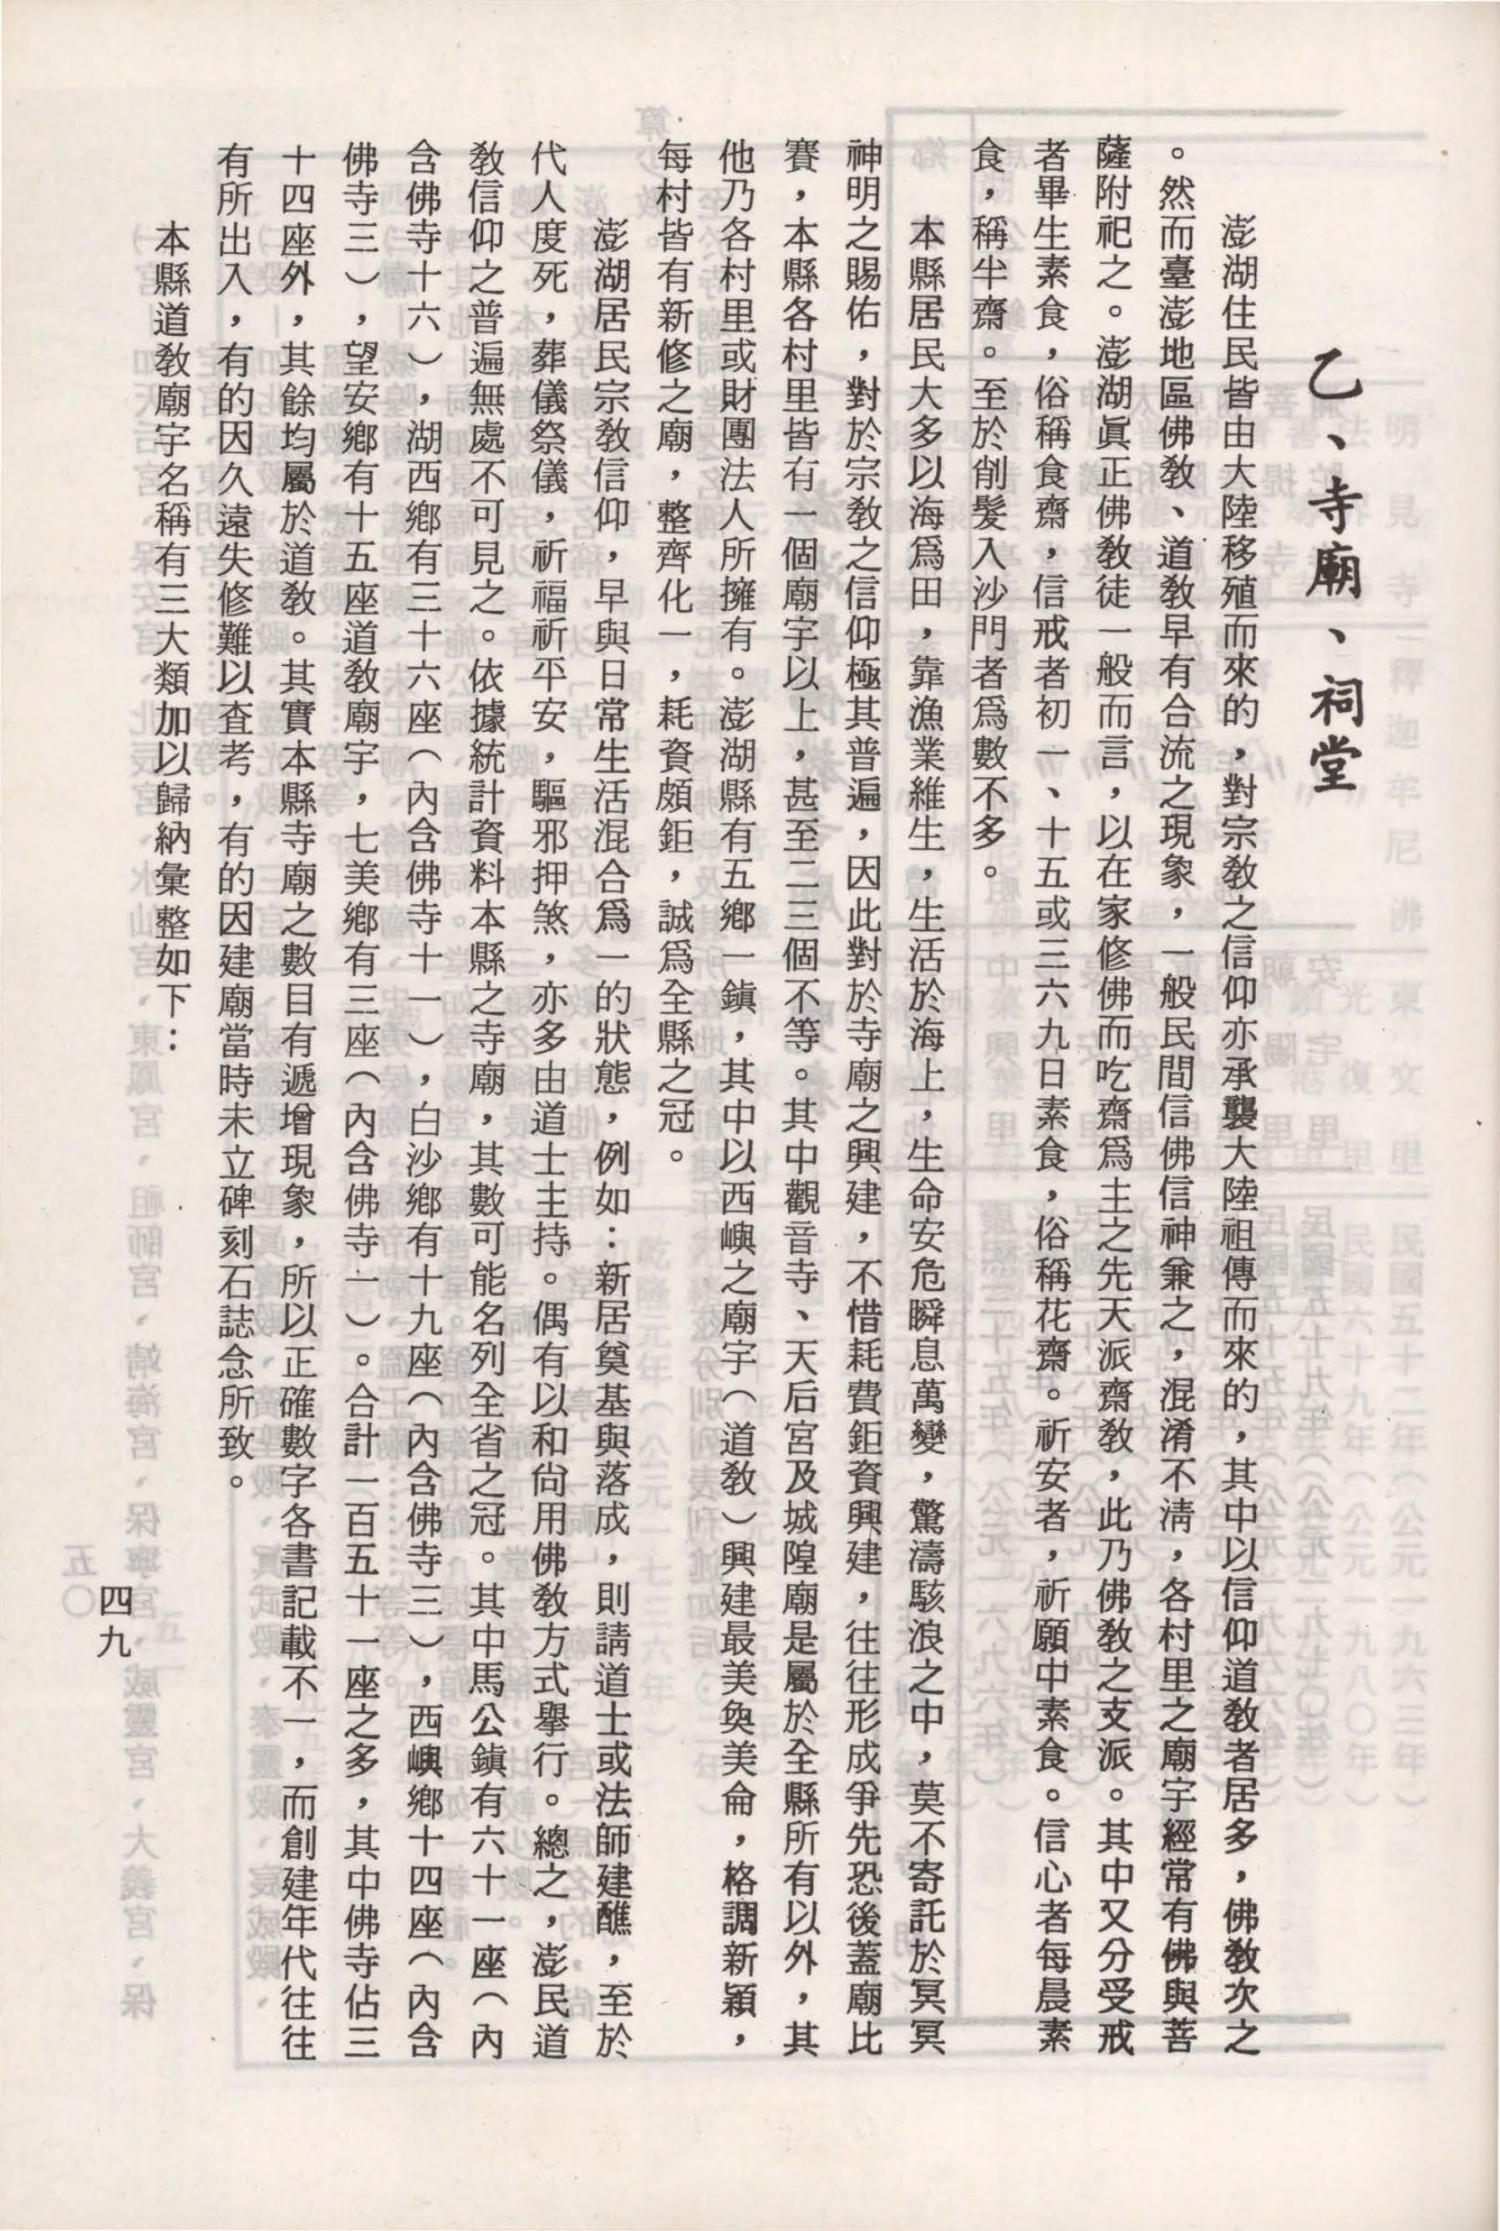 乙、寺廟、祠堂
澎湖住民皆由大陸移殖而來的，對宗教之信仰亦承襲大陸祖傳而來的，其中以信仰道教者居多，佛教次之
。然而臺澎地區佛教、道教早有合流之現象，一般民間信佛信神兼之，混淆不清，各村里之廟宇經常有佛與菩
薩附祀之。澎湖眞正佛教徒一般而言，以在家修佛而吃齋爲主之先天派齋教，此乃佛教之支派。其中又分受戒
者畢生素食，俗稱食齋，信戒者初一、十五或三六九日素食，俗稱花齋。祈安者，祈願中素食。信心者每晨素
食，稱半齋。至於削髮入沙門者爲數不多。
本縣居民大多以海爲田，靠漁業維生，生活於海上，生命安危瞬息萬變，驚濤駭浪之中，莫不寄託於冥冥
神明之賜佑，對於宗教之信仰極其普遍，因此對於寺廟之興建，不惜耗費鉅資興建，往往形成爭先恐後蓋廟比
賽，本縣各村里皆有一個廟宇以上，甚至二三個不等。其中觀音寺、天后宮及城隍廟是屬於全縣所有以外，其
他乃各村里或財團法人所擁有。澎湖縣有五鄉一鎮，其中以西嶼之廟宇（道教）興建最美奐美侖，格調新穎，
每村皆有新修之廟，整齊化一，耗資頗鉅，誠爲全縣之冠。
澎湖居民宗教信仰，早與日常生活混合爲一的狀態，例如：新居奠基與落成，則請道士或法師建醮，至於
代人度死，葬儀祭儀，祈福祈平安，驅邪押煞，亦多由道士主持。偶有以和尚用佛教方式舉行。總之，澎民道
教信仰之普遍無處不可見之。依據統計資料本縣之寺廟，其數可能名列全省之冠。其中馬公鎮有六十一座（內
含佛寺十六），湖西鄉有三十六座（內含佛寺十一），白沙鄉有十九座（內含佛寺三），西嶼鄉十四座（內含
佛寺三），望安鄉有十五座道教廟宇，七美鄉有三座（內含佛寺一）。合計一百五十一座之多，其中佛寺佔三
十四座外，其餘均屬於道教。其實本縣寺廟之數目有遞增現象，所以正確數字各書記載不一，而創建年代往往
有所出入，有的因久遠失修難以查考，有的因建廟當時未立碑刻石誌念所致。
本縣道教廟宇名稱有三大類加以歸納彙整如下：
四九